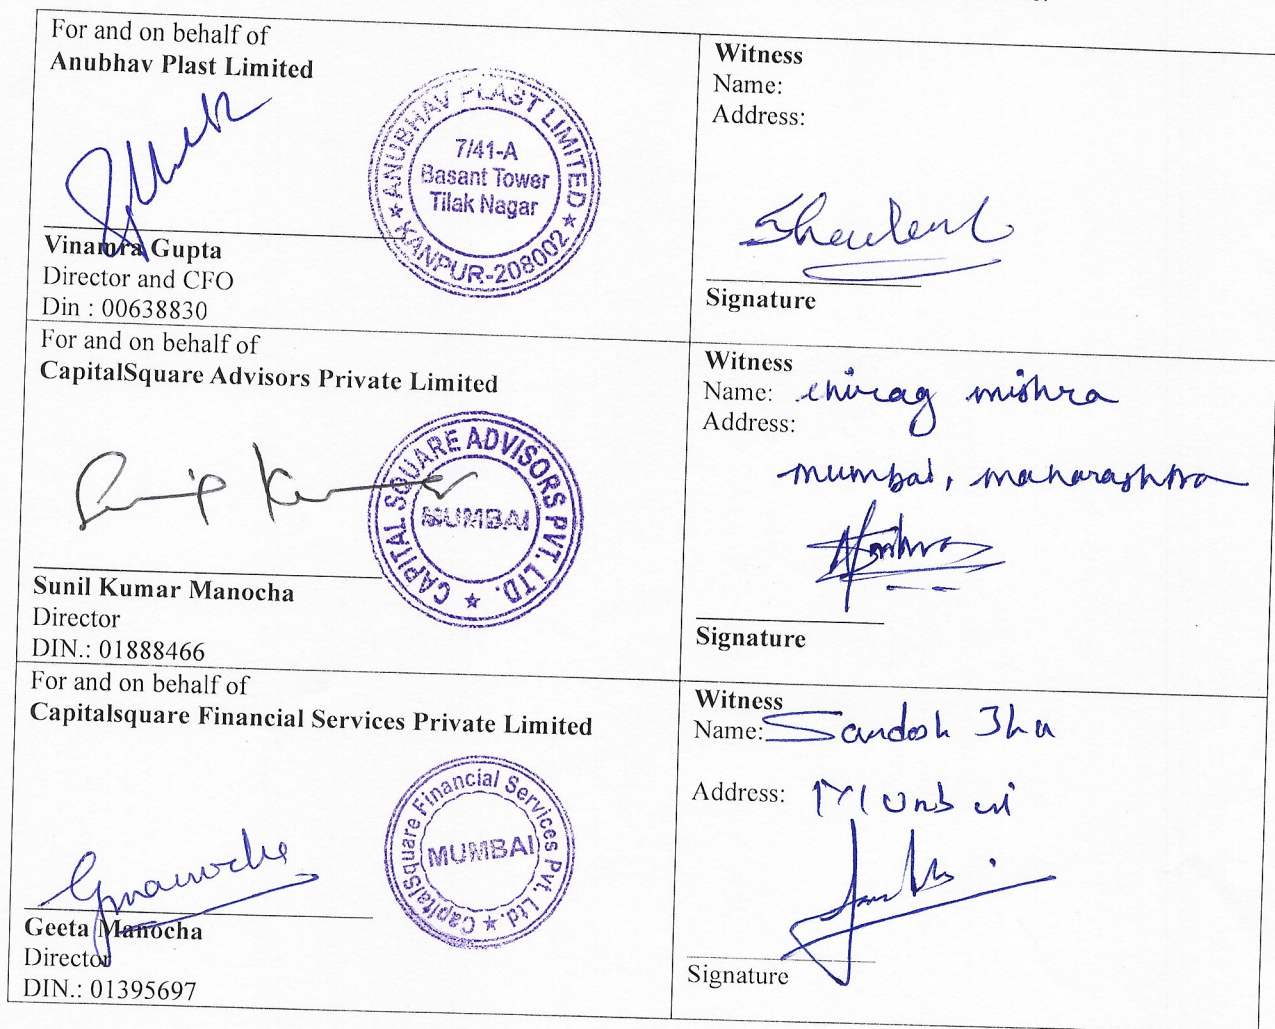 For and on behalf of
Anubhav Plast Limited
ANUBHAV PLAST LIMITED
7/41-A
Basant Tower
Tilak Nagar
★ KANPUR-208002 ★
Vinamra Gupta
Director and CFO
Din : 00638830
Witness
Name:
Address:
Signature
For and on behalf of
CapitalSquare Advisors Private Limited
CAPITAL SQUARE ADVISORS PVT. LTD. ★
MUMBAI
Sunil Kumar Manocha
Director
DIN.: 01888466
Witness
Name: chirag mishra
Address:
mumbai, maharashtra
Signature
For and on behalf of
Capitalsquare Financial Services Private Limited
CapitalSquare Financial Services Pvt. Ltd. ★
MUMBAI
Gmanocha
Geeta Manocha
Director
DIN.: 01395697
Witness
Name: Sandosh Jha
Address: Mumbai
Signature